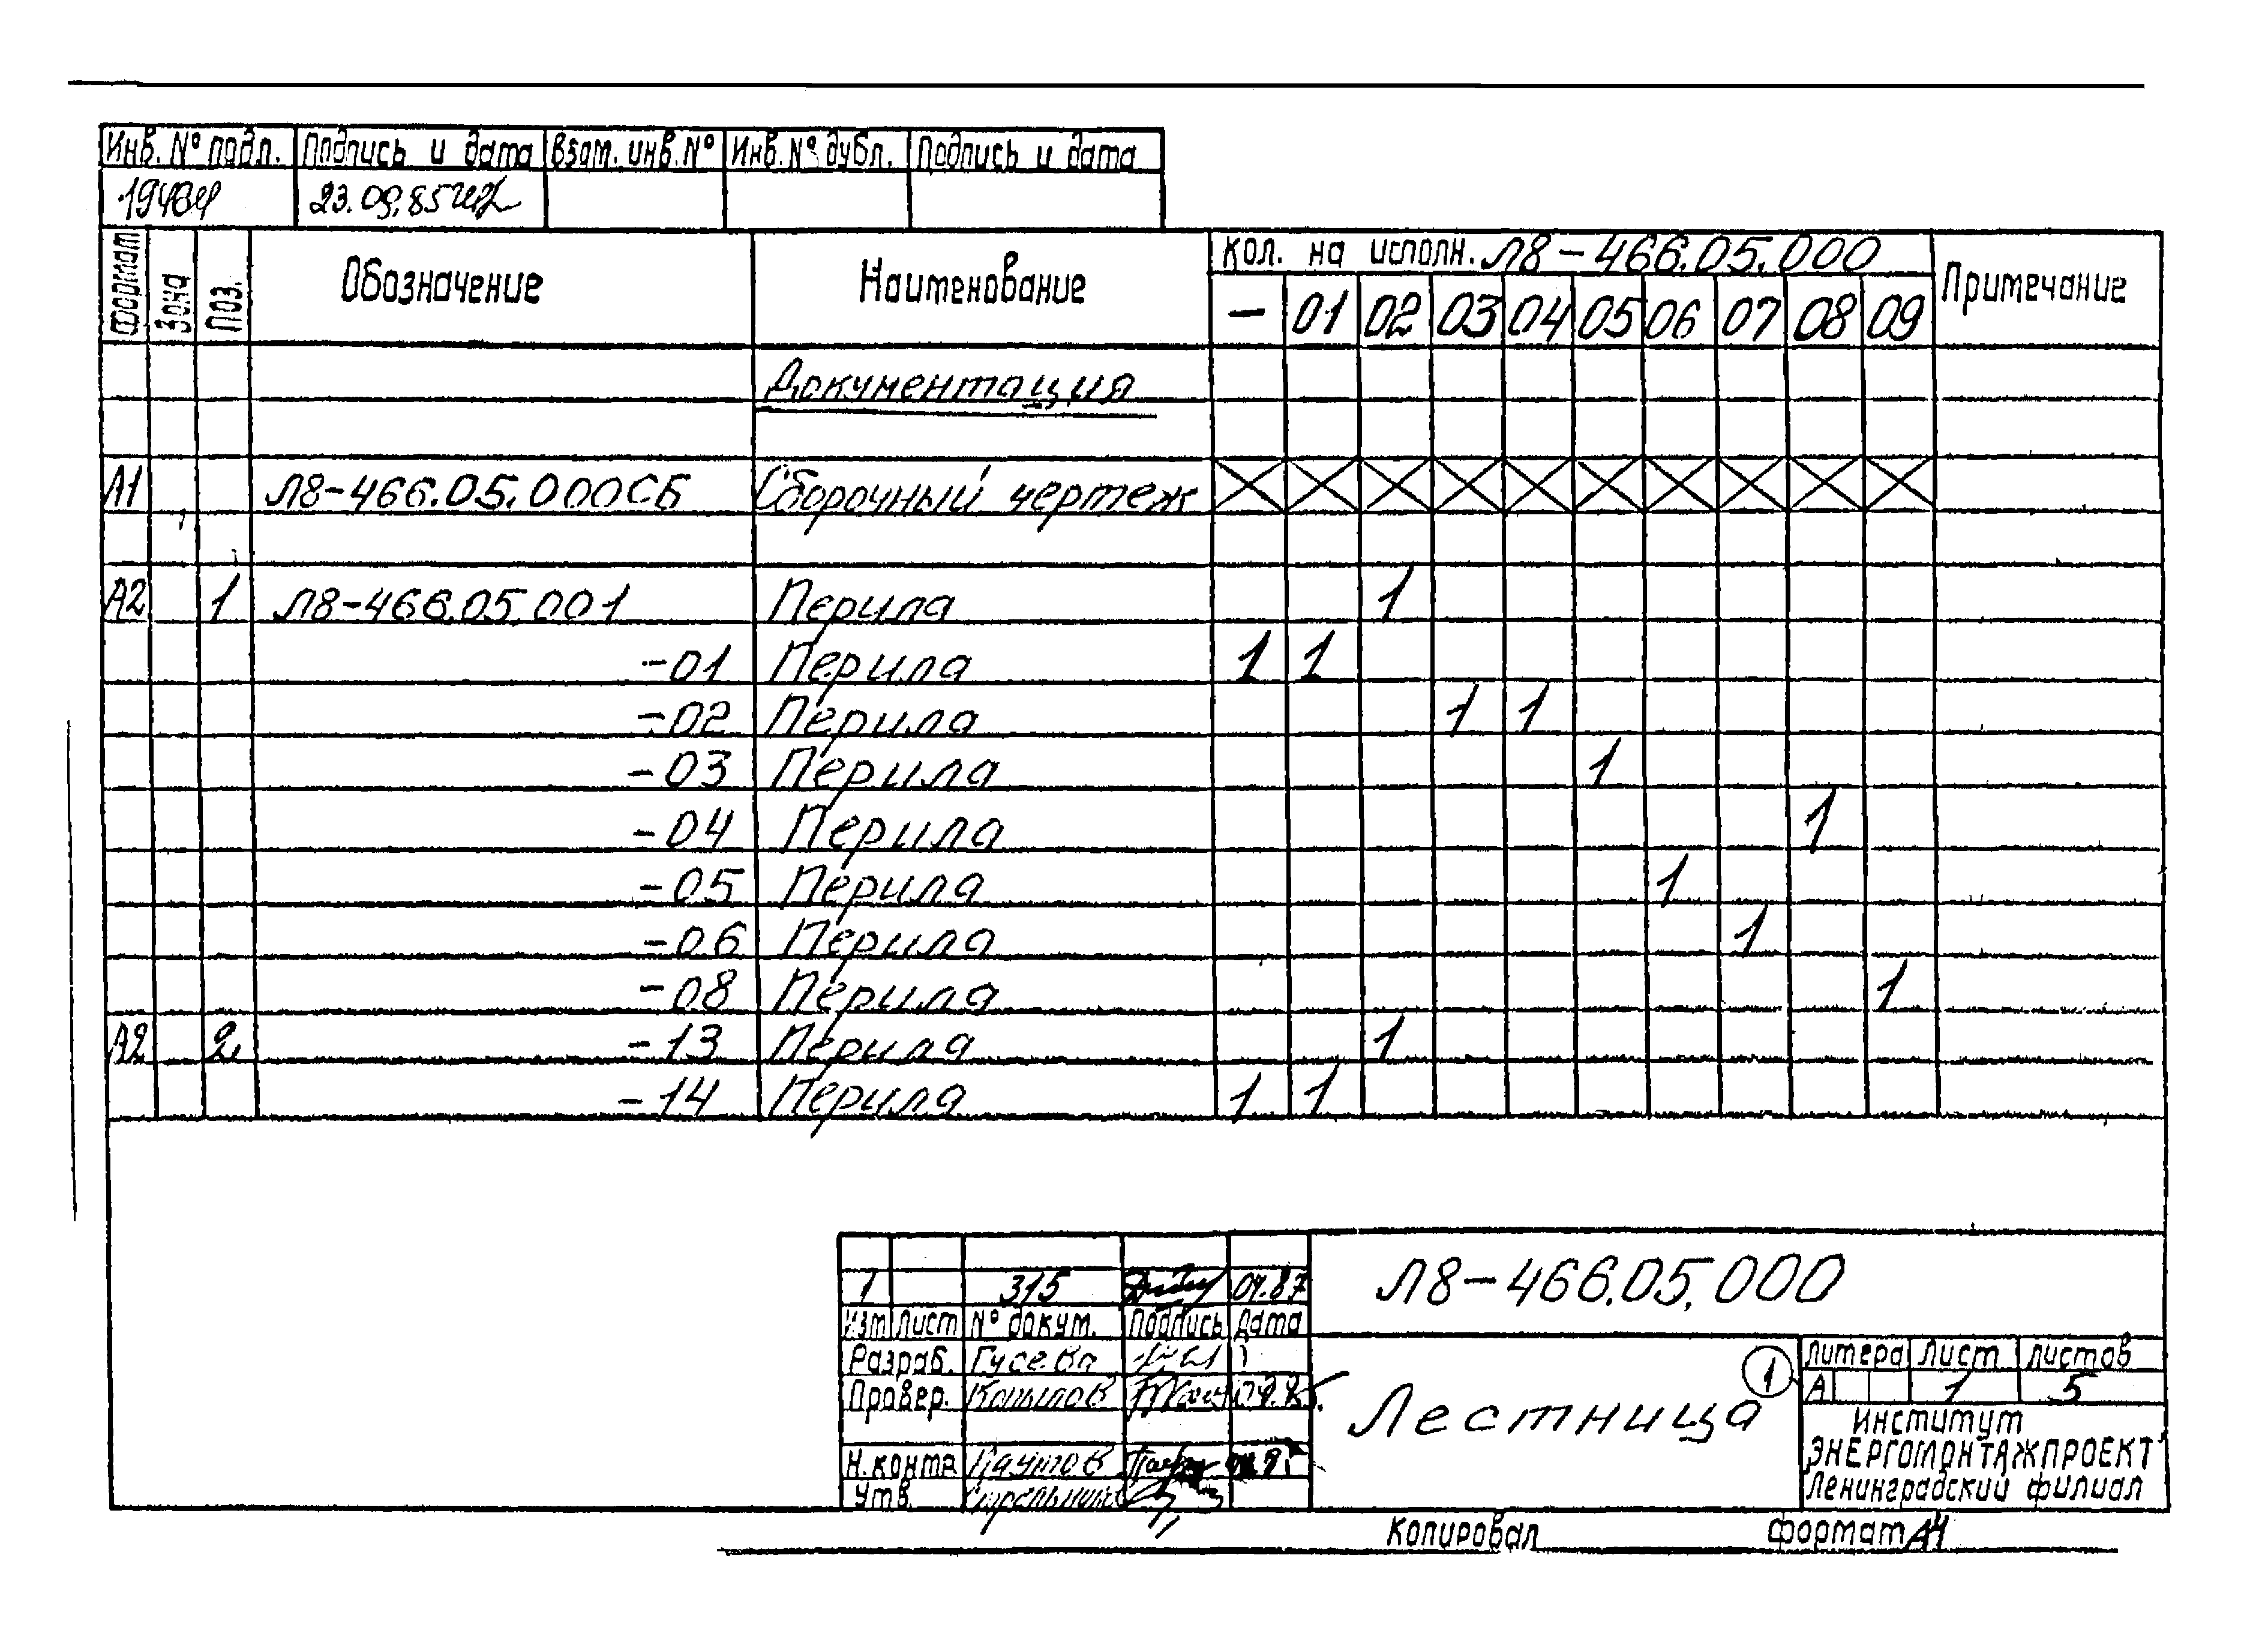 Инв. № подл. Подпись и дата Взам. инв. № Инв. № дубл. Подпись и дата
23.09.85
Формат Зона Поз. Обозначение Наименование Кол. на исполн. Л8-466.05.000 Примечание
- 01 02 03 04 05 06 07 08 09
Документация
А1 Л8-466.05.000СБ Сборочный чертеж
А2 1 Л8-466.05.001 Перила 1
-01 Перила 1 1
-02 Перила 1 1
-03 Перила 1
-04 Перила 1
-05 Перила 1
-06 Перила 1
-08 Перила 1
А2 2 -13 Перила 1
-14 Перила 1 1
1 315 04.87
Изм Лист № докум. Подпись Дата
Л8-466.05.000
Разраб. Гусева
Провер. Копылов
Н.контр Паутов
Утв.
Лестница 1
Литера Лист Листов
А 1 5
Институт
ЭНЕРГОМОНТАЖПРОЕКТ
Ленинградский филиал
Копировал Формат А4